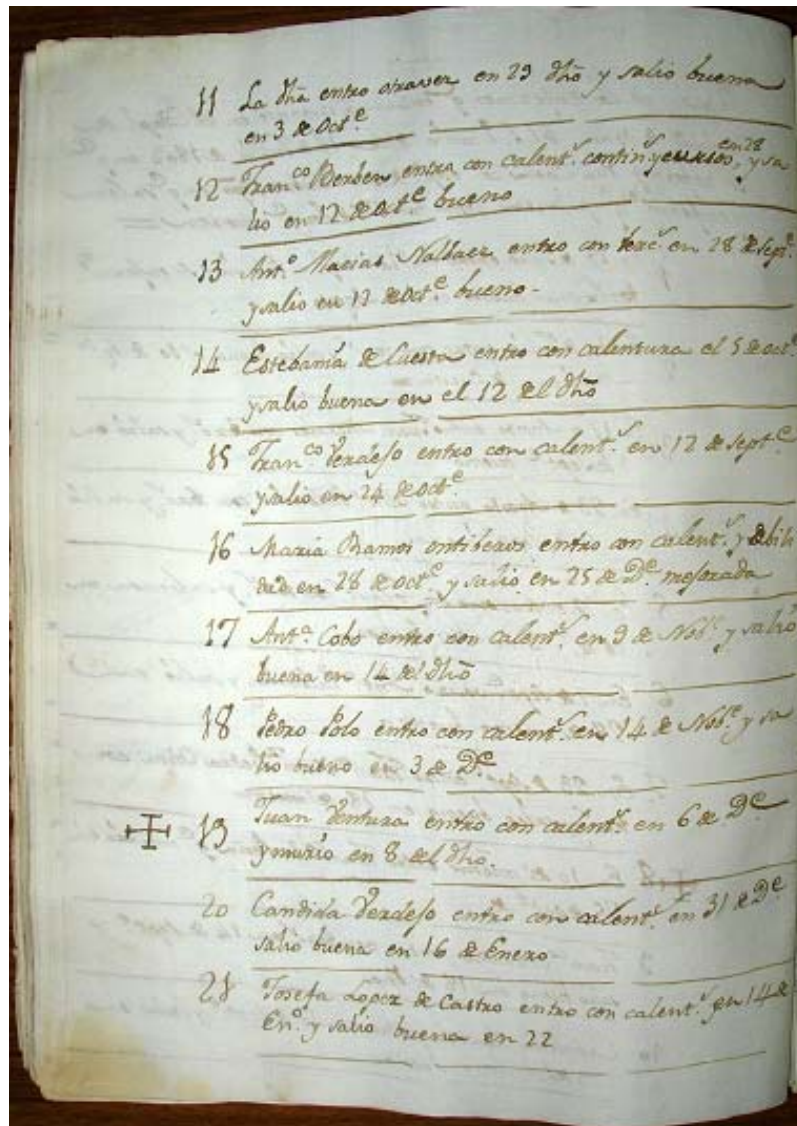 11 La dha entro otravez en 29 dho y salio buena
en 3 de Octe
12 Franco Berben entro con calents continy cursos en 28 y sa
lio en 12 de Octe bueno
13 Anto Macias Nalbaez entro con terc en 28 de Sepe
y salio en 12 de Octe bueno.
14 Estebania de Cuesta entro con calentura el 5 de octe
y salio buena en el 12 del dho
15 Franco Verdejo entro con calents en 12 de Septe
y salio en 24 de Octe
16 Maria Ramos ontiberos entro con calents y debili
dad en 28 de Octe y salio en 25 de De mejorada
17 Anta Cobo entro con calents en 9 de Nobe y salio
buena en 14 del dho
18 Pedro Polo entro con calents en 14 de Nobe y sa
lio bueno en 3 de De
19 Juan Ventura entro con calents en 6 de De
y murio en 8 del dho.
20 Candida Verdejo entro con calents en 31 de De
salio buena en 16 de Enero
21 Josefa Lopez de Castro entro con calents en 14 de
Eno y salio buena en 22